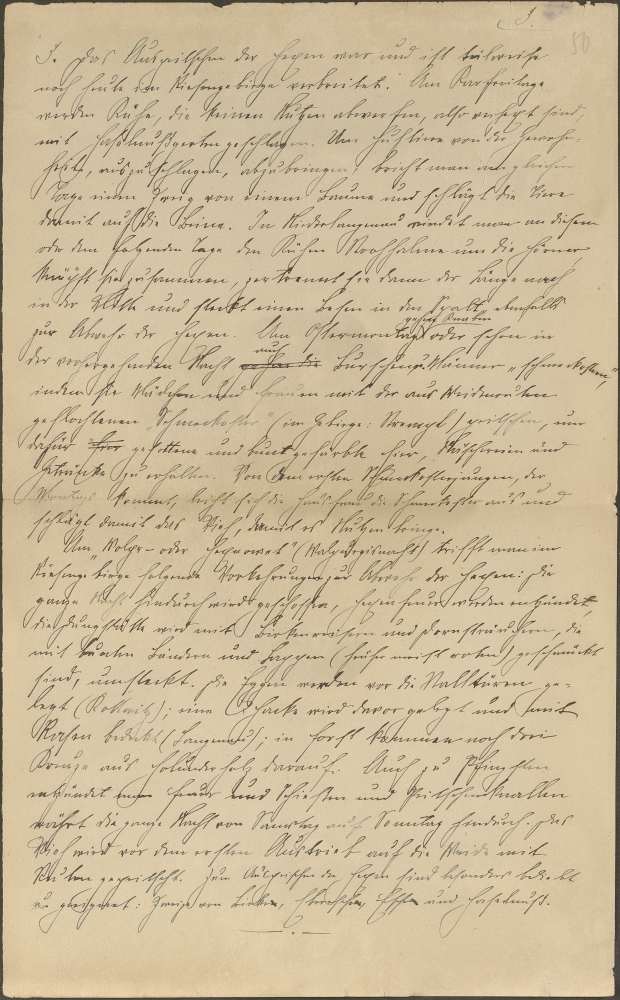 I.
50
I. Das Auspeitschen der Hexen war und ist teilweise
noch heute im Riesengebirge verbreitet. Am Karfreitage
werden Kühe, die keinen Nutzen abwerfen, also verhext sind,
mit Haselnußgerten geschlagen. Um Hühner von der Gewohn-
heit, auszuschlagen, abzubringen, bricht man am gleichen
Tage einen Zweig von einem Baume und schlägt die Tiere
damit auf die Beine. In Niederlangenau windet man an diesem
oder dem folgenden Tage den Kühen Strohhalme um die Hörner,
knüpft sie zusammen, zertrennt sie dann der Länge nach
in der Mitte und steckt einen Besen in den Spalt, ebenfalls
zur Abwehr der Hexen. Am Ostermontag gehen Knaben oder schon in
der vorhergehenden Nacht auch die Burschen u. Männer „schmeckostern",
indem sie Mädchen und Frauen mit der aus Weidenruten
geflochtenen „Schmeckoster" (im Gebirge: ) peitschen, um
dafür gesottene und bunt gefärbte Eier, Näschereien und
Getränke zu erhalten. Von dem ersten Schmeckosterjungen, der
Montags kommt, leiht sich die Hausfrau die Schmeckoster aus und
schlägt damit das Vieh, damit es Nutzen bringe.
Am „Wolper- oder Hexenowet" (Walpurgisnacht) trifft man im
Riesengebirge folgende Vorkehrungen zur Abwehr der Hexen: Die
ganze Nacht hindurch wird geschossen, Hexenfeuer werden entzündet,
die Dungstätte wird mit Birkenreisern und Dornsträuchern, die
mit bunten Bändern und Lappen (früher meist roten) geschmückt
sind, umsteckt. Die Eggen werden vor die Stalltüren ge-
legt (Rokitnitz); eine Hacke wird davor gelegt und mit
Rasen bedeckt (Langenau); in Forst kommen noch drei
Kreuze aus Holunderholz darauf. Auch zu Pfingsten
entzündet man Feuer und Schießen und Peitschenknallen
währt die ganze Nacht von Samstag auf Sonntag hindurch. Das
Vieh wird vor dem ersten Austrieb auf die Weide mit
Ruten gepeitscht. Zum Auspeitschen der Hexen sind besonders beliebt
u. geeignet: Zweige von Birken, Ebereschen, und Haselnuß.